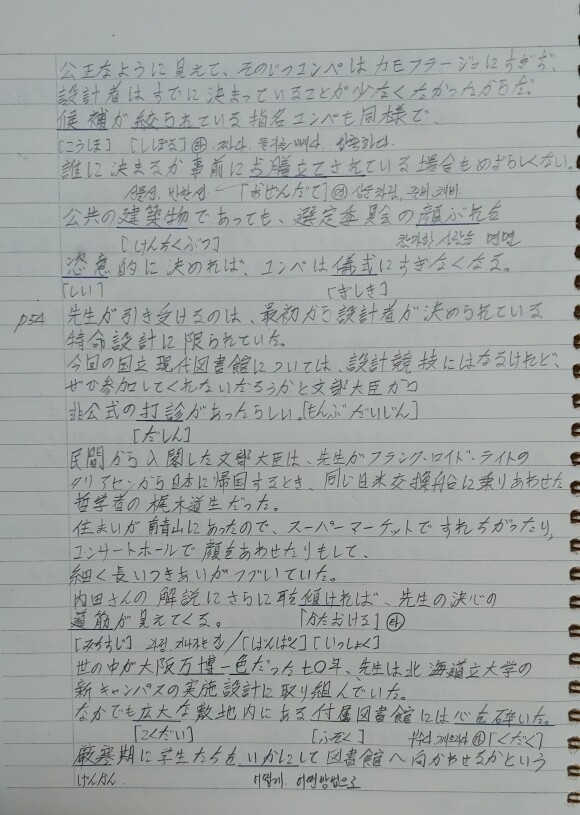 公正なように見えて、そのじつコンペはカモフラージュにすぎず、
設計者はすでに決まっていることが少なくなかったからだ。
候補が絞られている指名コンペも同様で、
[こうほ] [しぼる] 他 짜다.
誰に決まるか事前にお膳立てされている場合もめずらしくない。
「おぜんだて」 他
公共の建築物であっても、選定委員会の顔ぶれを
[けんちくぶつ] 참가한 사람들 면면
恣意的に決めれば、コンペは儀式にすぎなくなる。
[しい] [ぎしき]
p54 先生が引き受けるのは、最初から設計者が決められている
特命設計に限られていた。
今回の国立現代図書館については、設計競技にはなるけれど、
ぜひ参加してくれないだろうかと文部大臣から
非公式の打診があったらしい。[もんぶだいじん]
[だしん]
民間から入閣した文部大臣は、先生がフランク・ロイド・ライトの
タリアセンから日本に帰国するとき、同じ日米交換船に乗りあわせた
哲学者の梶木道生だった。
住まいが南青山にあったので、スーパーマーケットですれちがったり、
コンサートホールで顔をあわせたりもして、
細く長いつきあいがつづいていた。
内田さんの解説にさらに耳を傾ければ、先生の決心の
道筋が見えてくる。 「かたむける」 他
[みちすじ] /[ばんぱく] [いっしょく]
世の中が大阪万博一色だった七〇年、先生は北海道立大学の
新キャンパスの実施設計に取り組んでいた。
なかでも広大な敷地内にある付属図書館には心を砕いた。
[こくだい] [ふぞく] [くだく]
厳寒期に学生たちをいかにして図書館へ向かわせるかという
げんかん 어떻게. 어떤 방법으로